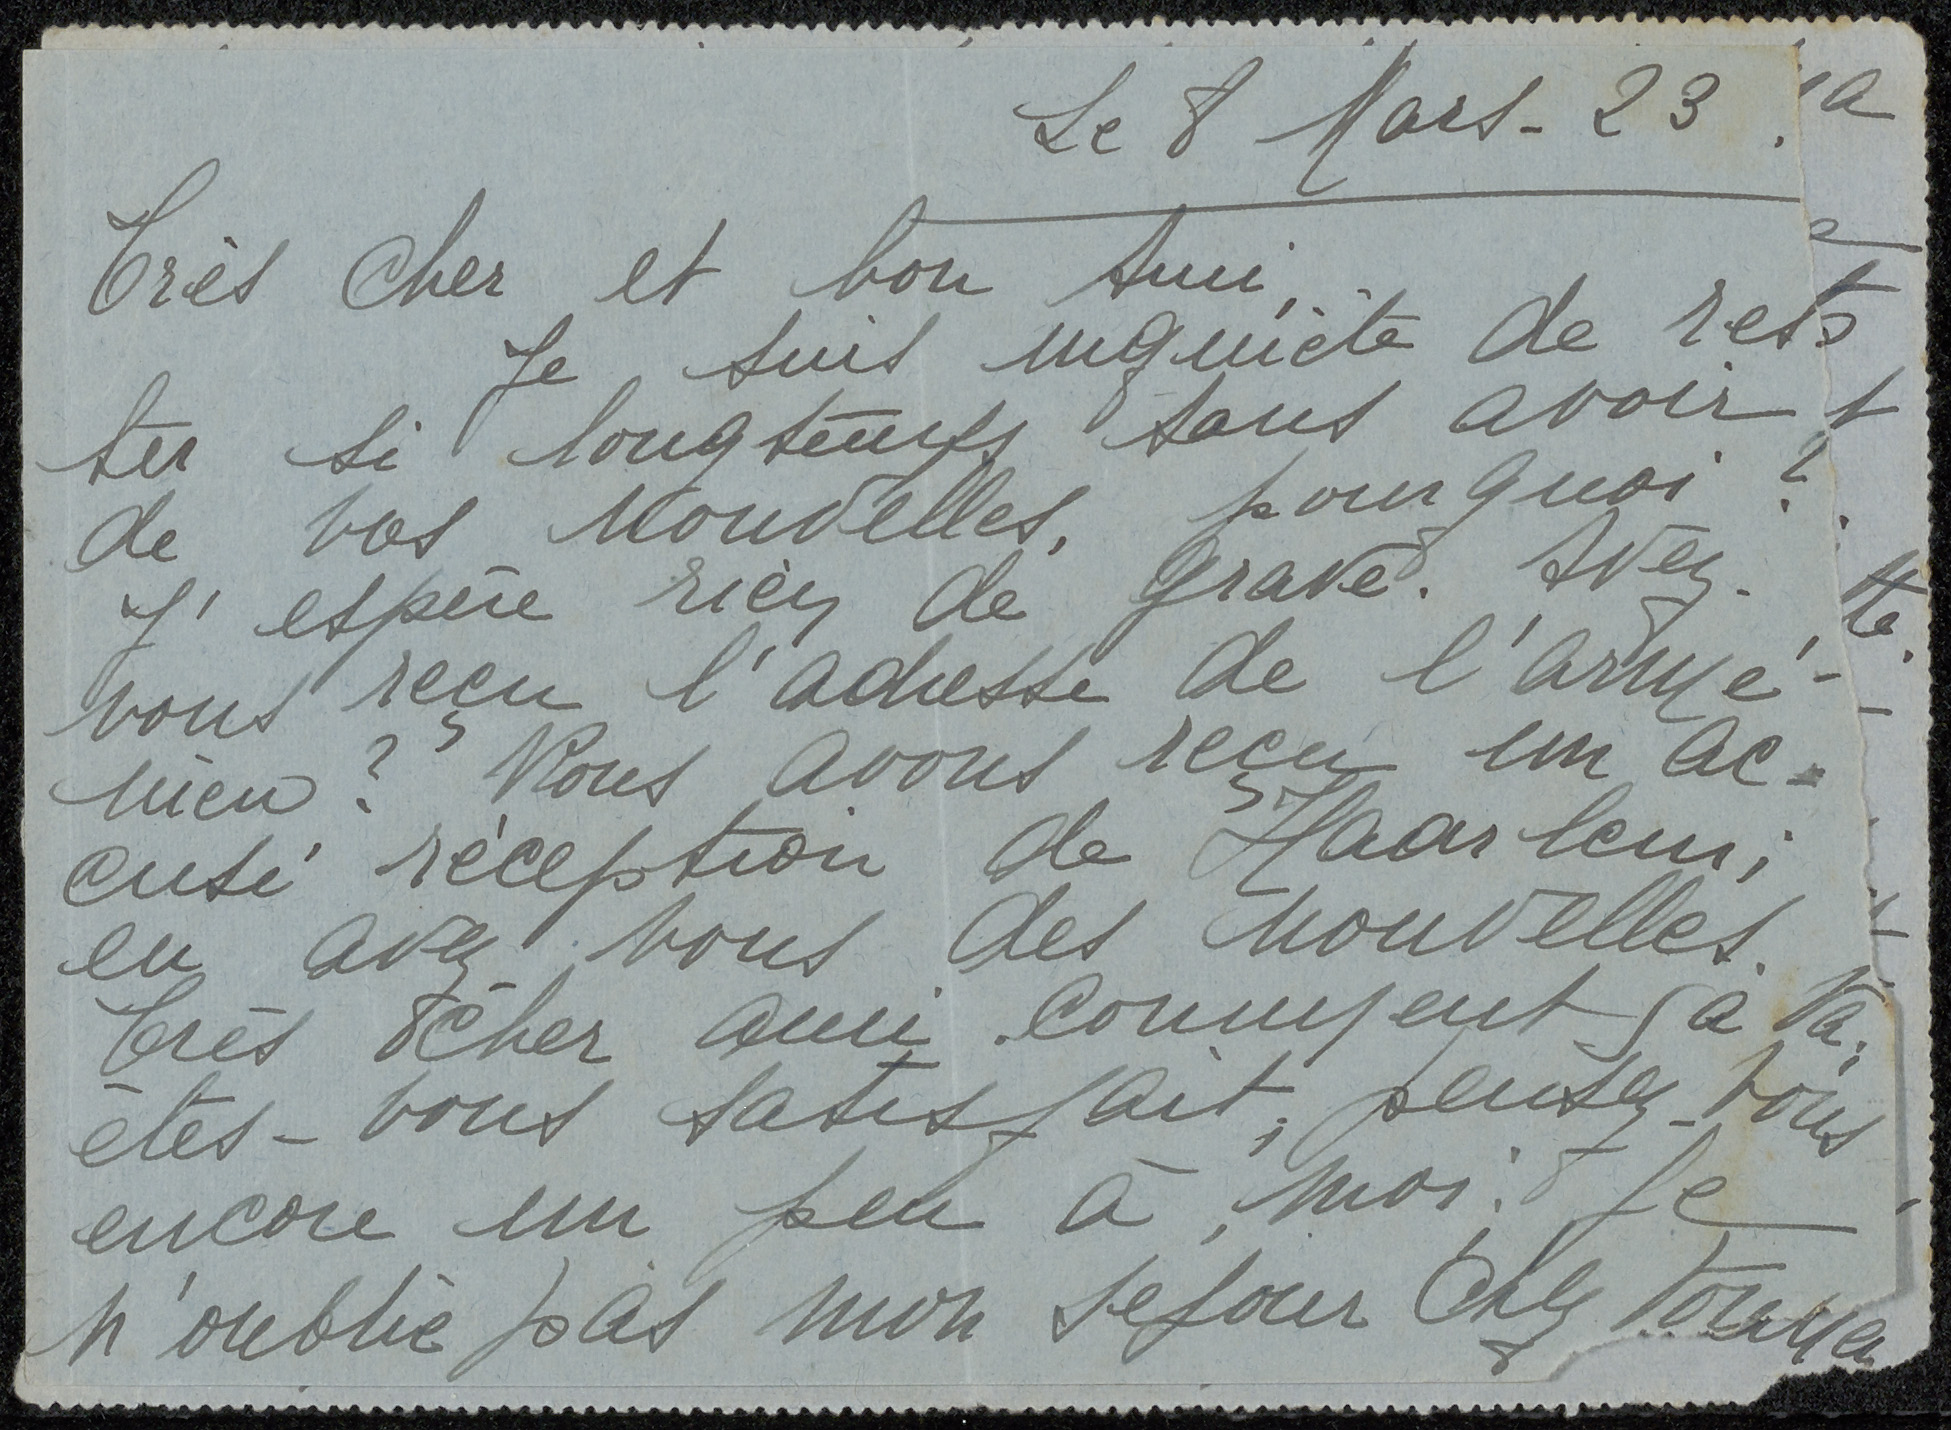 Le 8 Mars - 23.
Très cher et bon Ami,
Je suis inquiète de res
ter si longtemps sans avoir
de vos nouvelles, pourquoi ?
J'espère rien de grave. Avez-
vous reçu l'adresse de l'armé-
nien ? Nous avons reçu un ac-
cusé réception de Haarlem;
en avez vous des nouvelles.
Très cher ami comment ça va,
êtes-vous satisfait, pensez-vous
encore un peu à moi. Je
n'oublie pas mon sejour chez